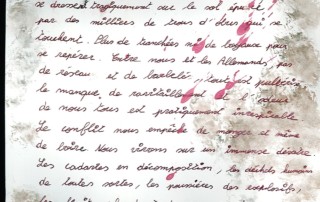 se dressent tragiquement sur le sol épar
par des milliers de trous d'obus qui se
touchent. Plus de tranchées ni de boyaux pour
se repérer. Entre nous et les Allemands, pas
de réseau et de barbelé, tout est pulvérisé,
le manque de ravitaillement et l'odeur
de nous tous est pratiquement irrespirable
Le conflit nous empêche de manger et même
de boire. Nous vivons sur un immense désastre.
Les cadavres en décomposition, les déchets humains
de toutes sortes, les poussières des explosifs,